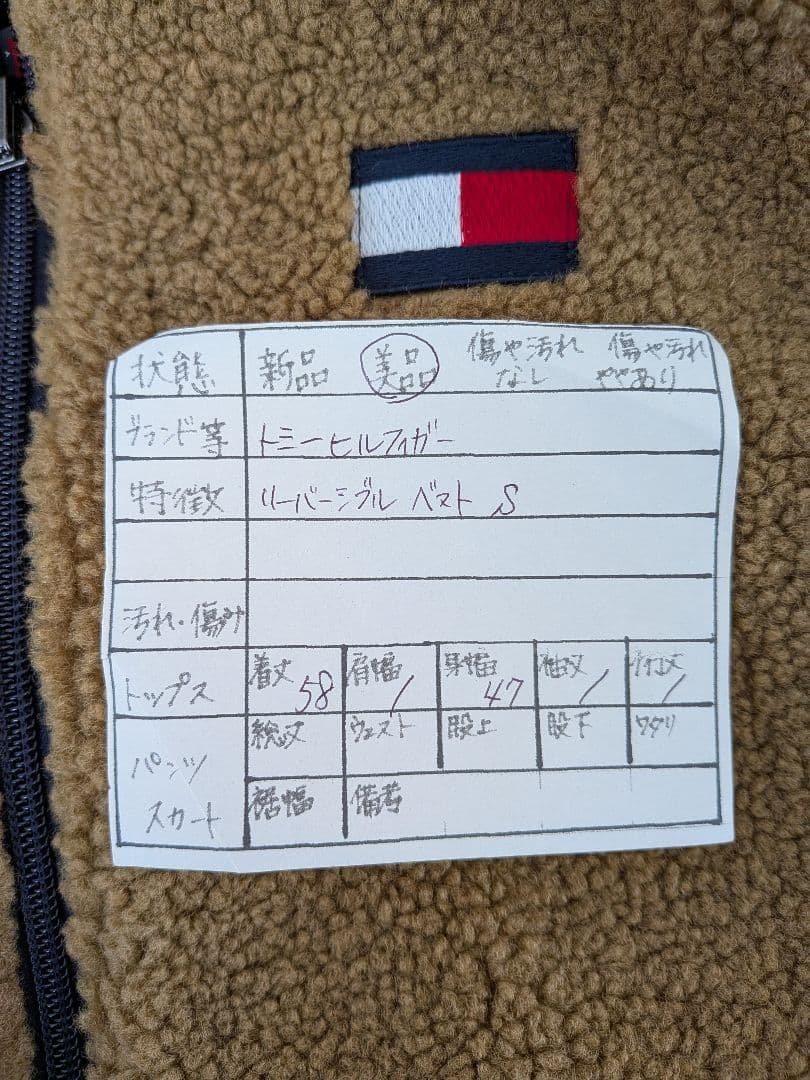 状態 新品 美品 傷や汚れなし 傷や汚れややあり
ブランド等 トミーヒルフィガー
特徴 リバーシブル ベスト S
汚れ・傷み
トップス 着丈 58 肩幅 / 身幅 47 袖丈 / 裄丈 /
パンツ スカート 総丈 ウエスト 股上 股下 ワタリ
裾幅 備考